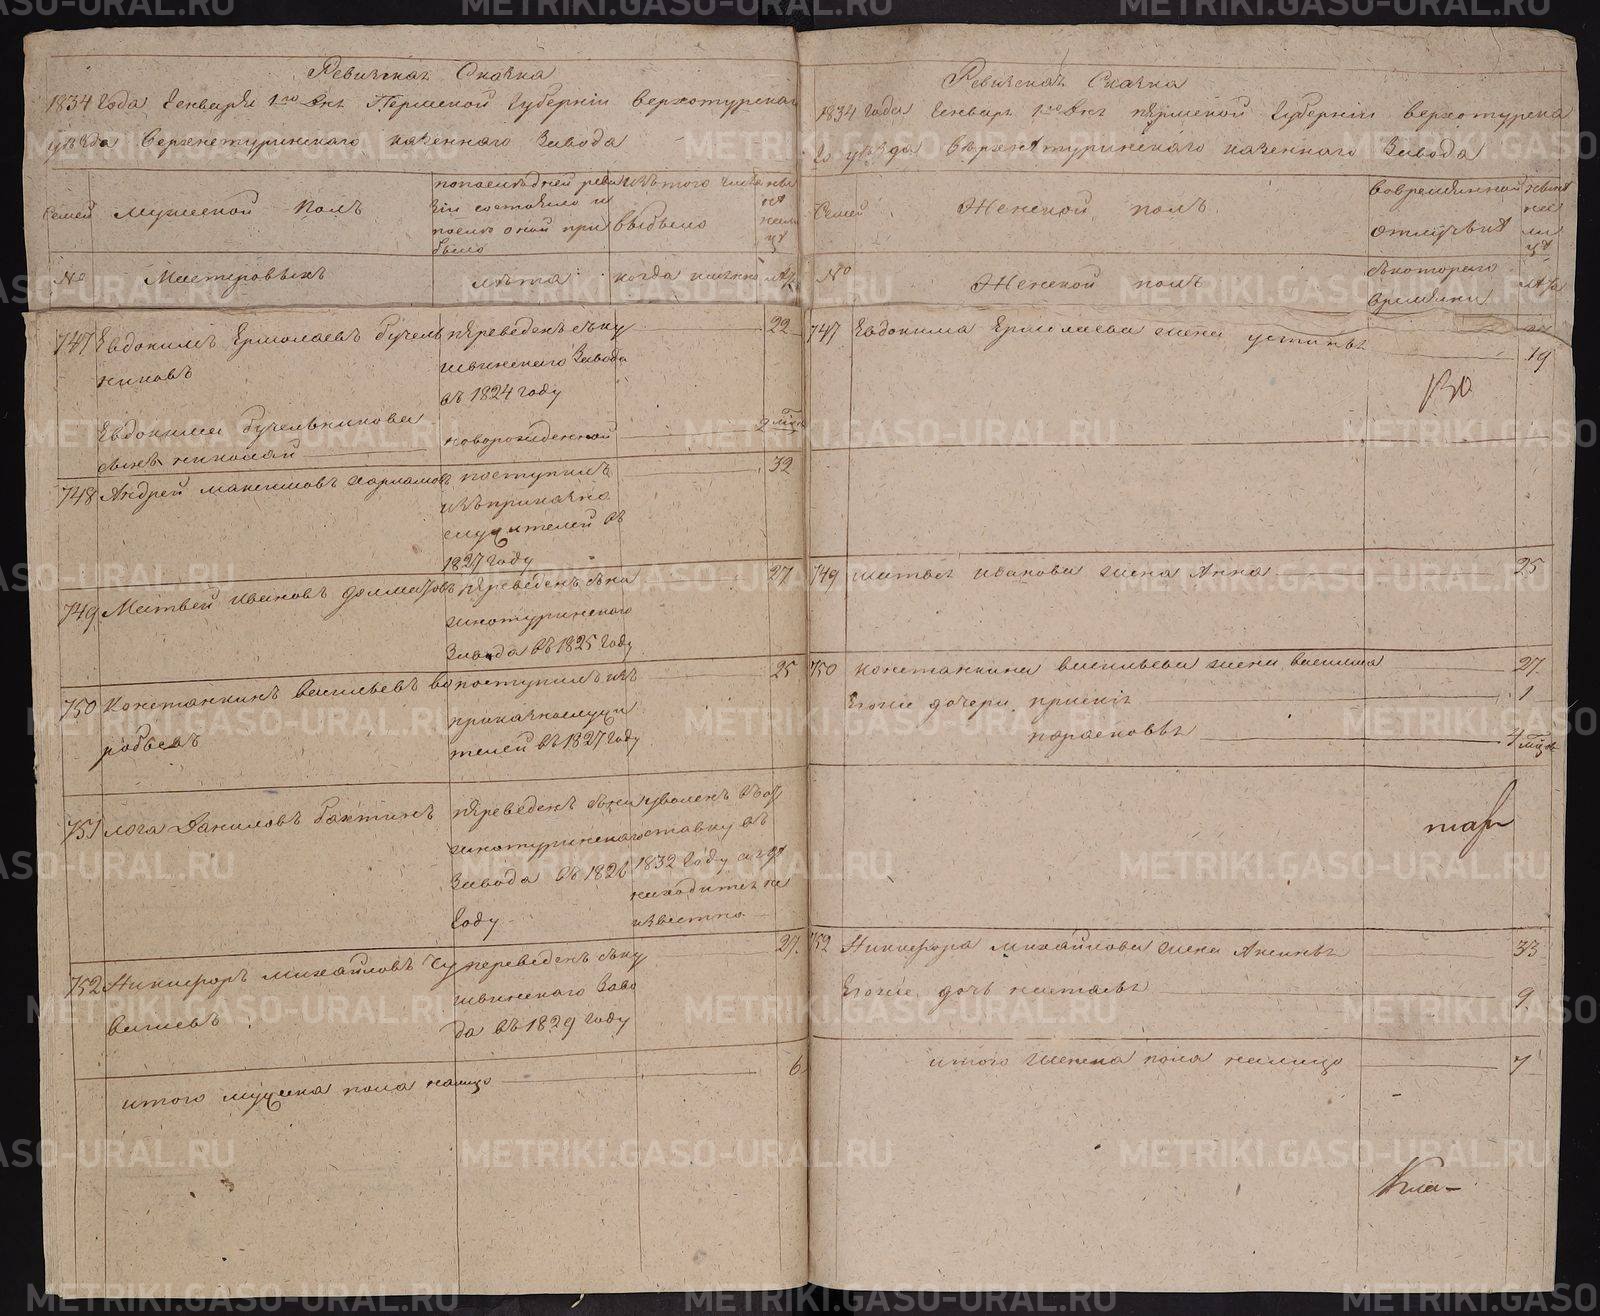 Ревижская Сказка
1834 года Генваря 1го дня Пермской Губернии Верхотурскаго
уѣзда Верхнетуринского казенного Завода
Семей
Мужеской полъ
попоследней реви
зіи состояло и
после оной при
было
изътого числа
выбыло
ныне
на
лицѣ
№
Мастеровыхъ
лѣта
когда именно
лѣта
747 Евдокимъ Ермолаевъ Бучель
никовъ
переведенъ съ ку
швинского Завода
въ 1824 году
22
Евдокима Бучельникова
сынъ николай
новорожденной
9 мѣся
748 Андрей максимовъ
поступилъ
изъ приказно
служителей въ
1827 году
32
749 Матвей ивановъ долматовъ
переведенъ съ ни
жнотуринского
Завода въ 1825 году
27
750 Констанкинъ васильевъ во
робьевъ
поступилъ изъ
приказнослужи
телей въ 1827 году
25
751 лога Даниловъ бахтинъ
переведенъ съ ни
жнотуринского
Завода въ 1826
году
уволенъ въ от
ставку въ
1832 году а где
находится не
известно
752 Никифоръ михайловъ Чу
вашевъ
переведенъ съ ку
швинского Заво
да въ 1829 году
27
итого мужска пола налицо 6
Ревижская Сказка
1834 года Генваря 1го дня пермской Губернии верхотурска
го уѣзда верхнетуринского казенного Завода
Семей
Женской полъ
во временной
отлучкѣ
ныне
на
ли
цѣ
№
Женской полъ
съ которого
времяни
лѣта
747 Евдокима Ермолаева жена устинья 19
749 матвея иванова жена Анна 25
750 констанкина васильева жена василиса 27
Егоже дочери 1
парасковья 4 мѣся
752 Никифора михайлова жена Аксинья 33
Егоже дочь наталья 9
итого женска пола налицо 7